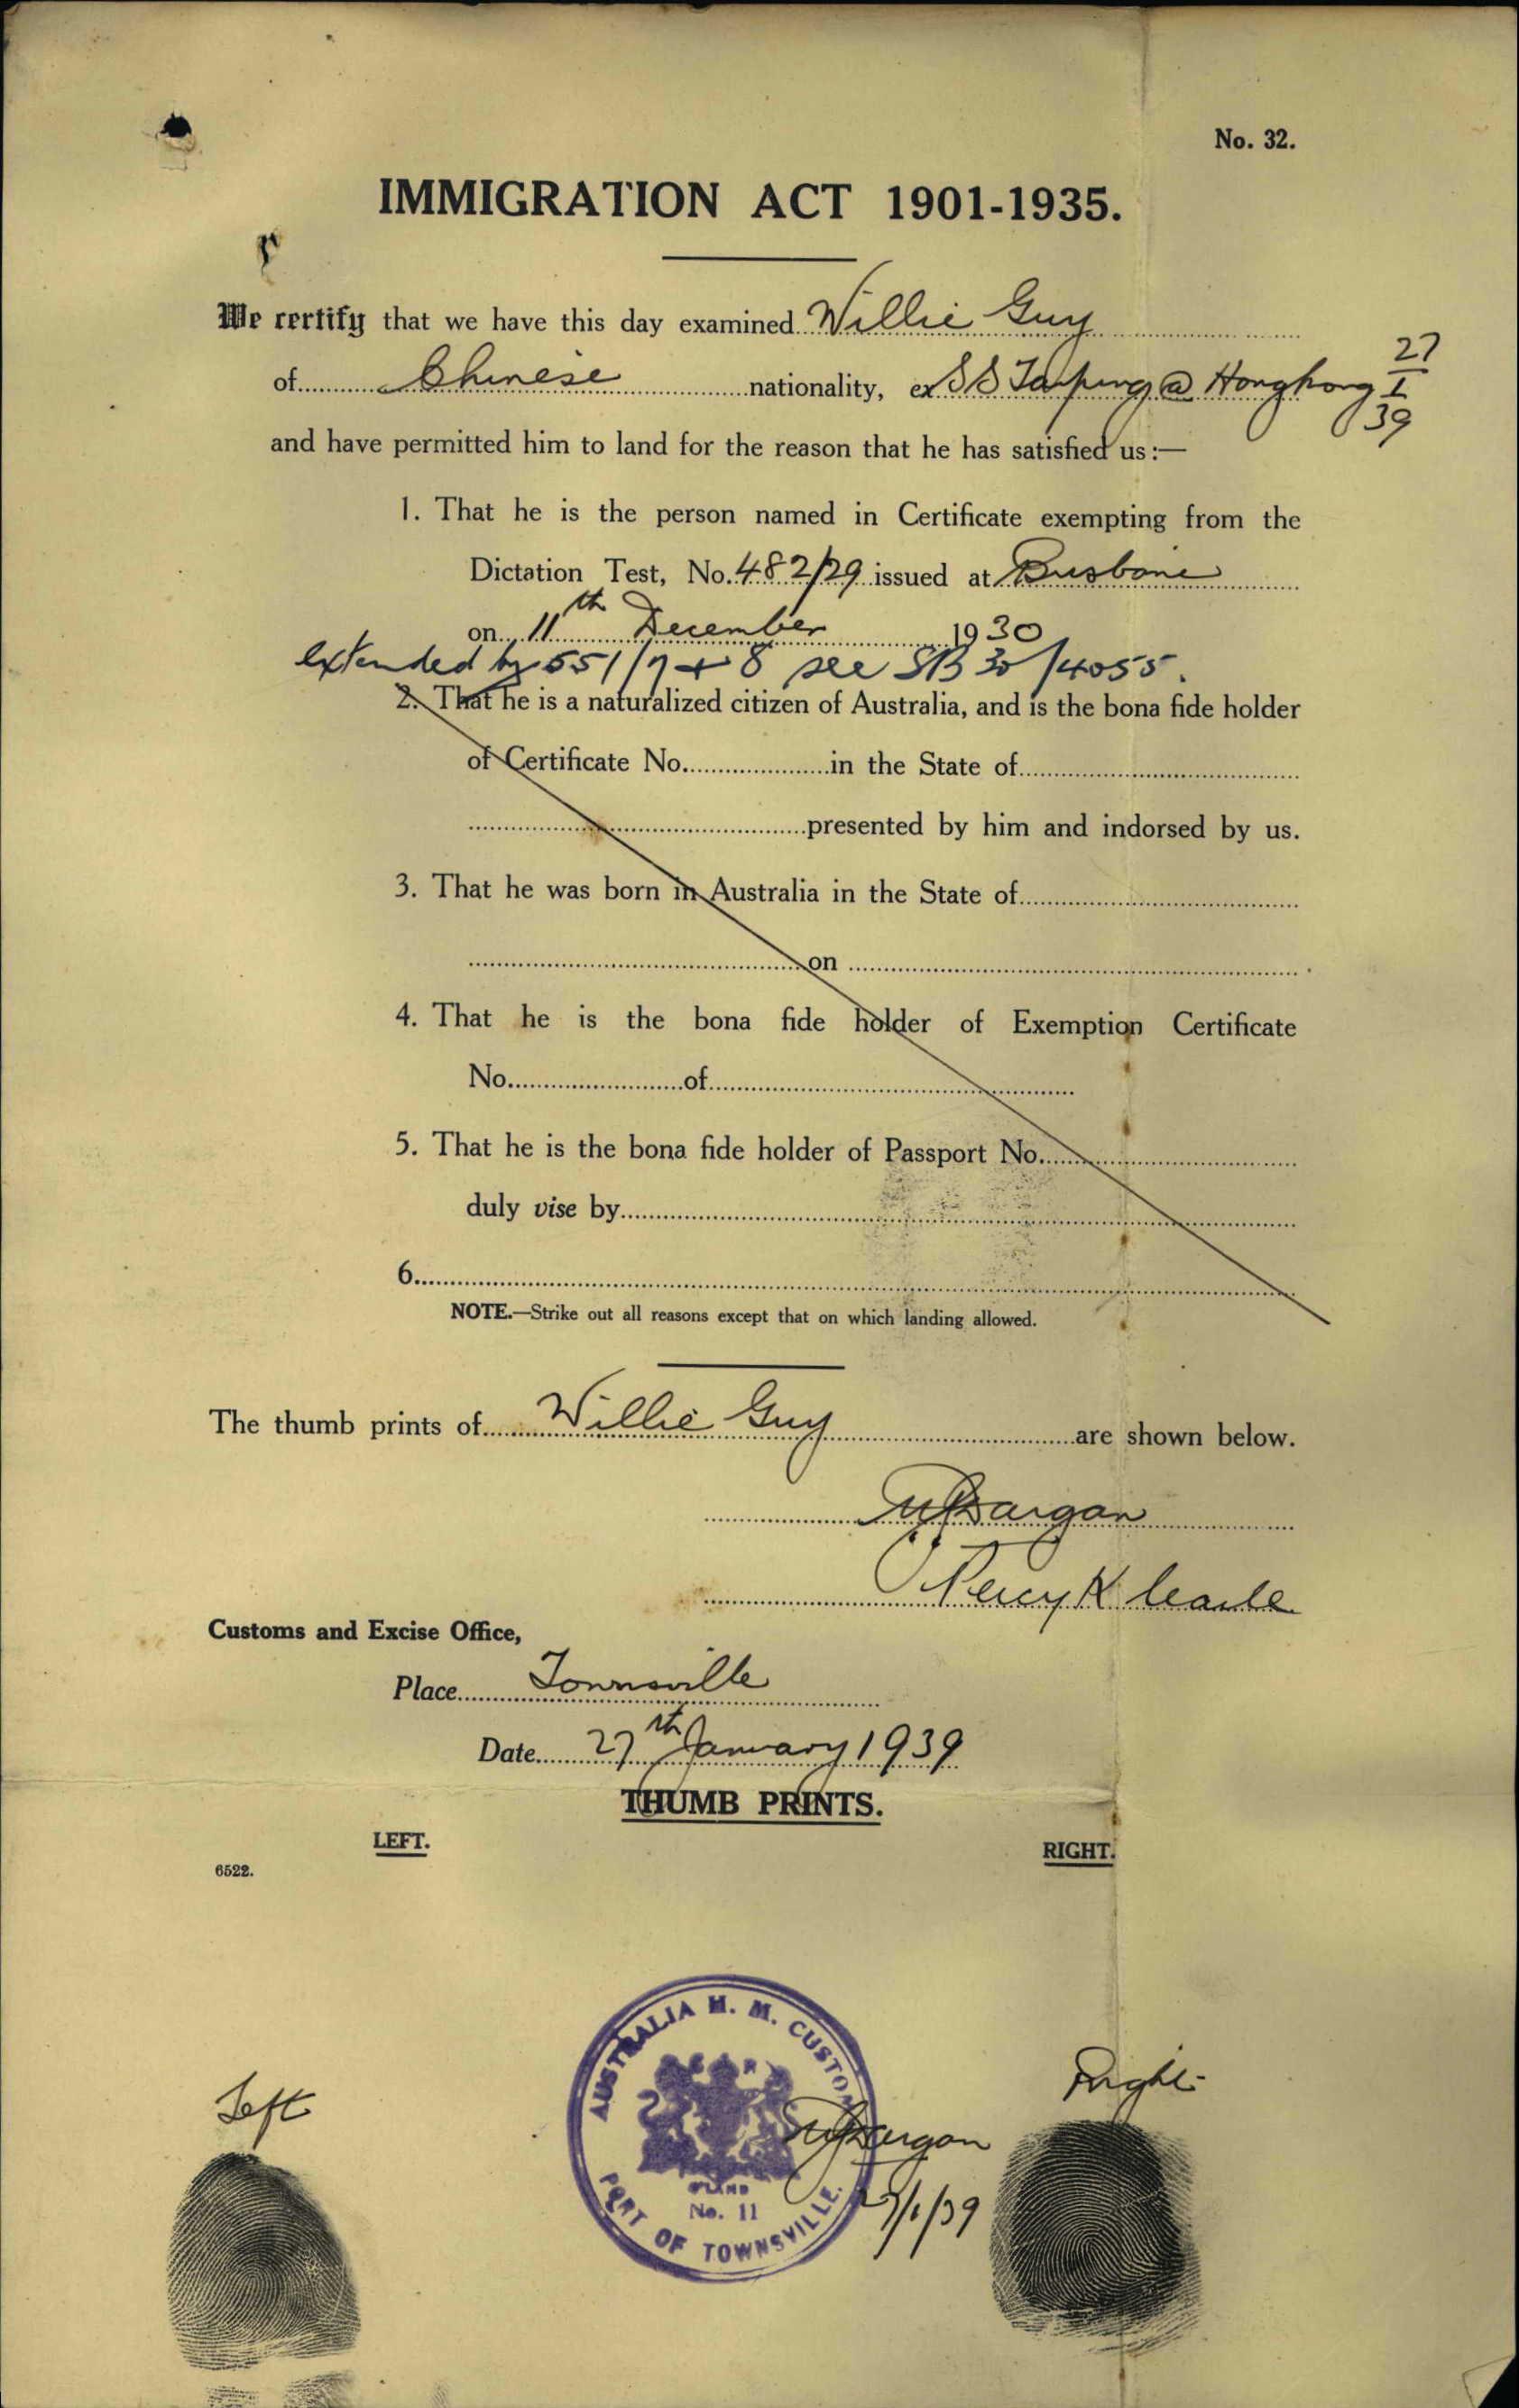 No. 32.
IMMIGRATION ACT 1901-1935.
We certify that we have this day examined Willie Guy
of Chinese nationality, ex SS Taiping @ Hongkong 27/1/39
and have permitted him to land for the reason that he has satisfied us:—
1. That he is the person named in Certificate exempting from the
Dictation Test, No. 482/29 issued at Brisbane
on 11th December 1930
extended by 551/7 + 8 see SB 30/4055.
2. That he is a naturalized citizen of Australia, and is the bona fide holder
of Certificate No. in the State of
presented by him and indorsed by us.
3. That he was born in Australia in the State of
on
4. That he is the bona fide holder of Exemption Certificate
No. of
5. That he is the bona fide holder of Passport No.
duly vise by
6.
NOTE.—Strike out all reasons except that on which landing allowed.
The thumb prints of Willie Guy are shown below.
Dargan
Percy K
Customs and Excise Office,
Place Townsville
Date 27th January 1939
THUMB PRINTS.
LEFT.
RIGHT.
6522.
AUSTRALIA H. M. CUSTOMS
No. 11
PORT OF TOWNSVILLE.
Left
Right
Dargan
27/1/39